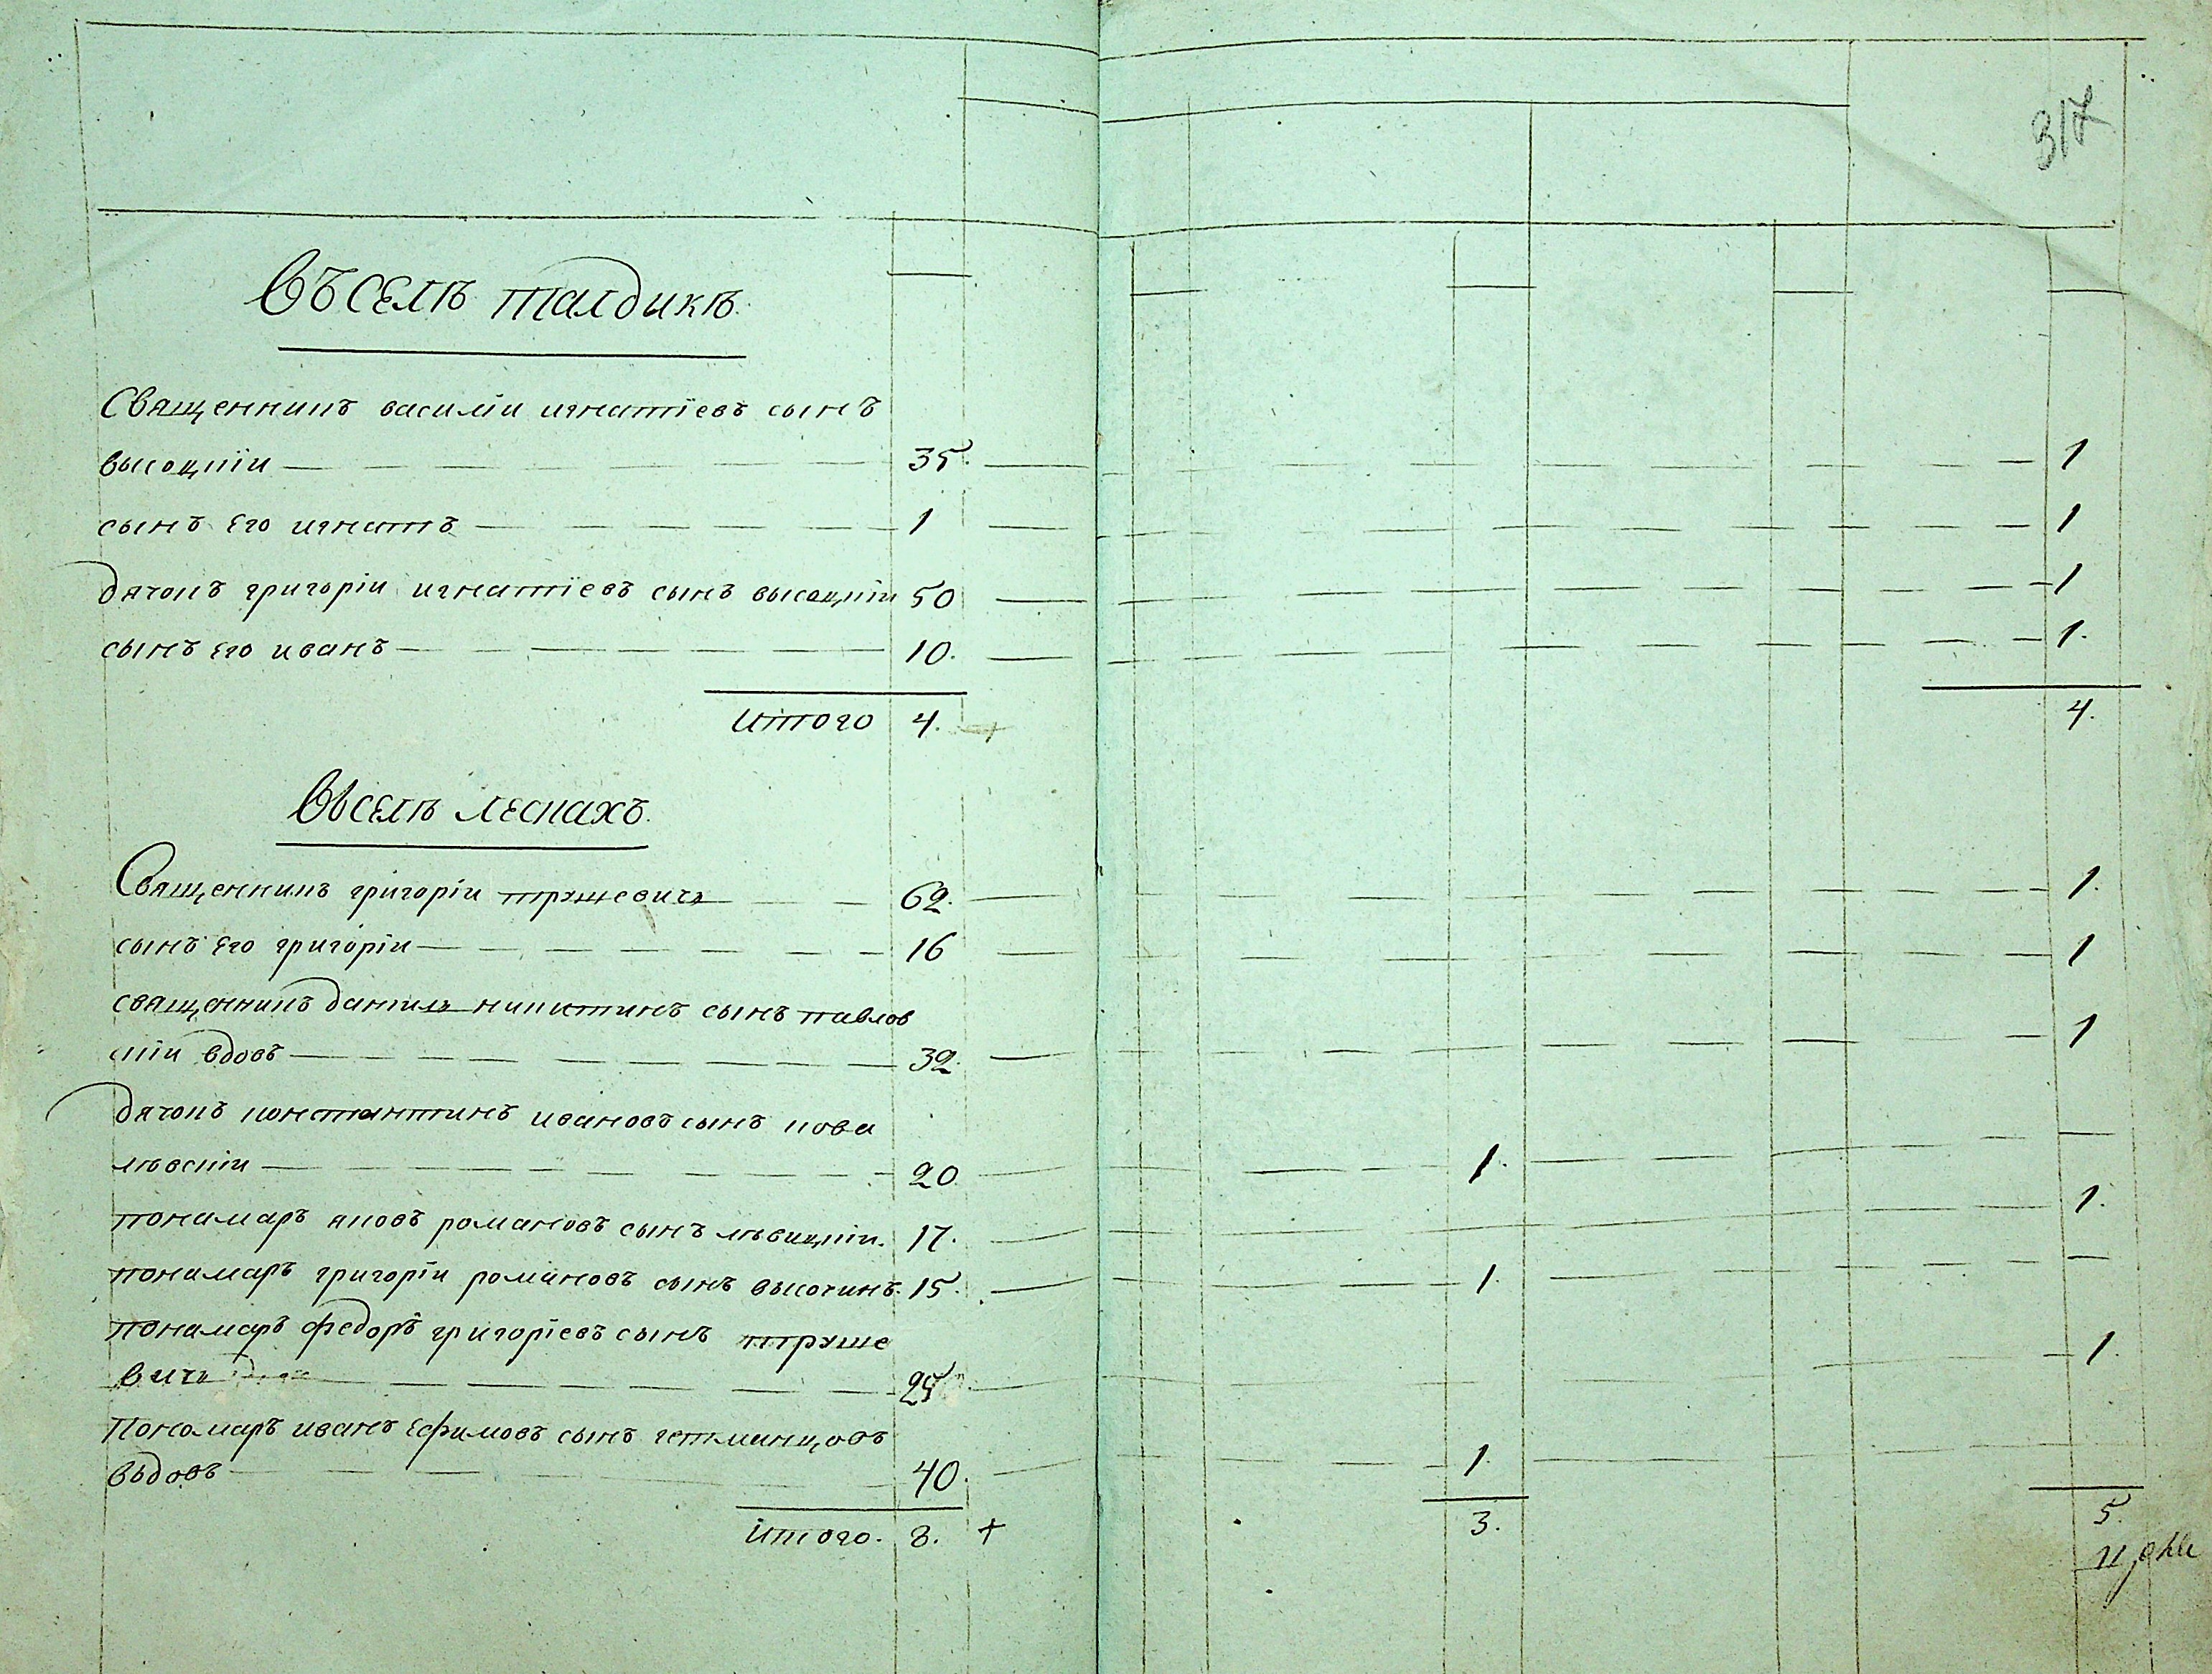 317
Въ селѣ талдикѣ.
Священникъ василіи игнатіевъ сынъ
высоцкіи 35. 1
сынъ его игнатъ 1 1
дячокъ григоріи игнатіевъ сынъ высоцкіи 50 1
сынъ его иванъ 10. 1.
Итого 4. 4.
Вьселѣ лескахъ.
Священникъ григоріи трушевичъ 62. 1.
сынъ его григоріи 16 1
священникъ данилъ никитинъ сынъ павлов
скіи вдовъ 32. 1
дячокъ константинъ ивановъ сынъ кова
лѣвскіи 20 1.
понамаръ яковъ романовъ сынъ лѣвицкіи. 17. 1.
понамаръ григоріи романовъ сынъ высочинъ. 15. 1.
понамаръ федоръ григоріевъ сынъ труше
вичъ 25 1.
Пономаръ иванъ Ефимовъ сынъ гетманцовъ
вьдовъ 40. 1.
Итого. 8. + 3. 5.